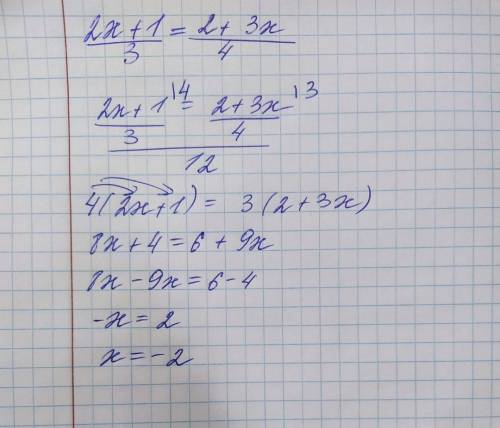 (2x + 1)/3 = (2 + 3x)/4
(2x + 1)/3 \4 = (2 + 3x)/4 \3
12
4(2x + 1) = 3(2 + 3x)
8x + 4 = 6 + 9x
8x - 9x = 6 - 4
-x = 2
x = -2